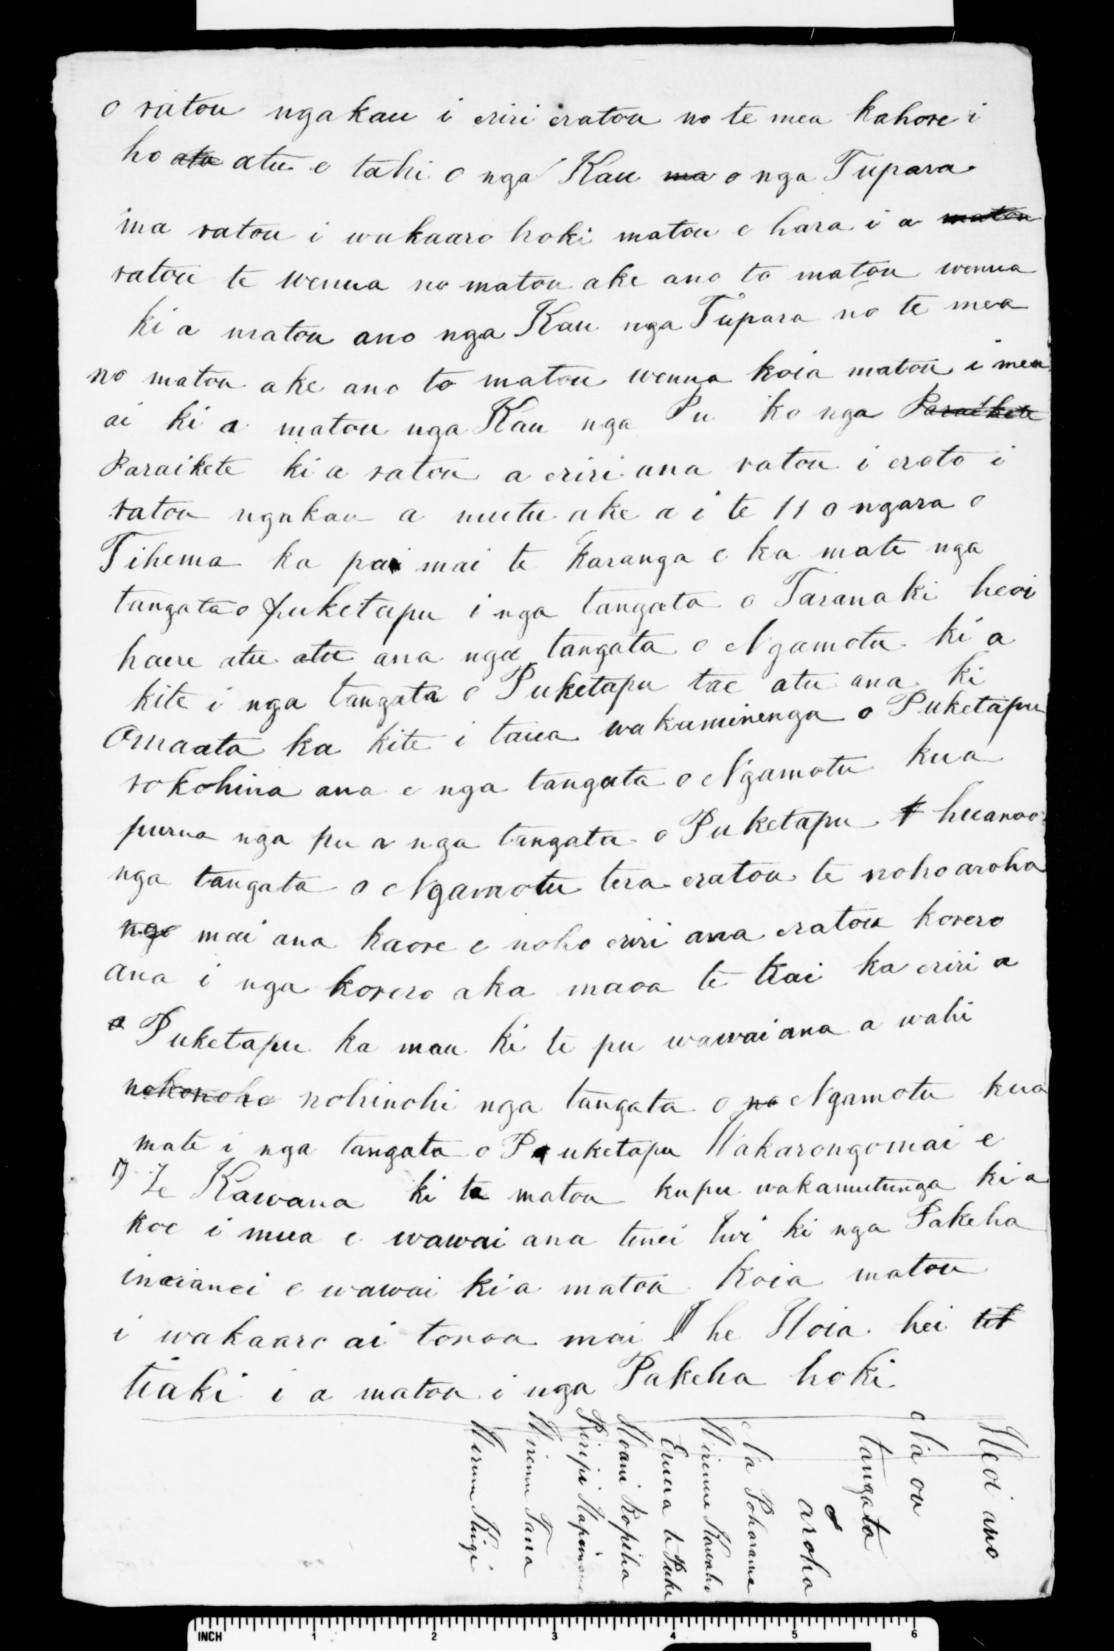 o ratou ngakau i eriri eratou no te mea kahore i
ho ata atu e tahi o nga Kau ma o nga Tupara
ma ratou i wakaaro hoki matou e hara i a matou
ratou te wenua no matou ake ano to matou wenua
ki a matou ano nga Kau nga Tupara no te mea
no matou ake ano to matou wenua koia matou i mea
ai ki a matou nga Kau nga Pu ko nga Paraikete
Paraikete ki a ratou a eriri ana ratou i eroto i
ratou ngakau a mutu ake a i te 11 o ngara o
Tihema ka pa mai te karanga e ka mate nga
tangata o Puketapu i nga tangata o Taranaki heoi
haere atu atu ana nga tangata o Ngamotu ki a
kite i nga tangata o Puketapu tae atu ana ki
Omaata ka kite i taua wakaminenga o Puketapu
rokohina ana e nga tangata o Ngamotu kua
purua nga pu a nga tangata o Puketapu t huanoo
nga tangata o Ngamotu tera eratou te noho aroha
nga mai ana kaore e noho eriri ana eratou korero
ana i nga korero aka maoa te kai ka eriri a
a Puketapu ka mau ki te pu wawai ana a wahi
nohonoho nohinohi nga tangata o na Ngamotu kua
mate i nga tangata o Puketapu Wakarongomai e
Te Kawana ki ta matou kupu wakamutunga ki a
koe i mua e wawai ana tenei Iwi ki nga Pakeha
inaianei e wawai ki a matou Koia matou
i wakaaro ai tonoa mai he Hoia hei tet
tiaki i a matou i nga Pakeha hoki
Heoi ano
Na ou
tangata
aroha
Na Poharama
Wiremu Kawaho
Eruera te Puke
Hoani Ropiha
Piripi Hapimana
Wiremu Tana
Wiremu Kingi
INCH 1 2 3 4 5 6